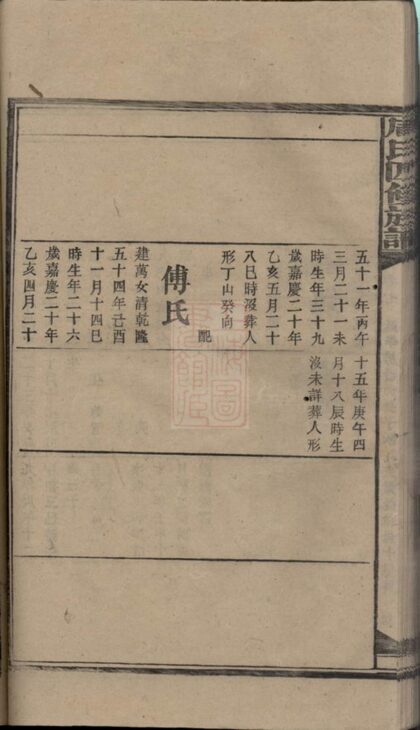 氏四修族譜
五十一年丙午
三月二十一未
時生年三十九
歲嘉慶二十年
乙亥五月二十
八巳時沒葬人
形丁山癸向
配
傅氏
建萬女清乾隆
五十四年己酉
十一月十四巳
時生年二十六
歲嘉慶二十年
乙亥四月二十
十五年庚午四
月十八辰時生
沒未詳葬人形